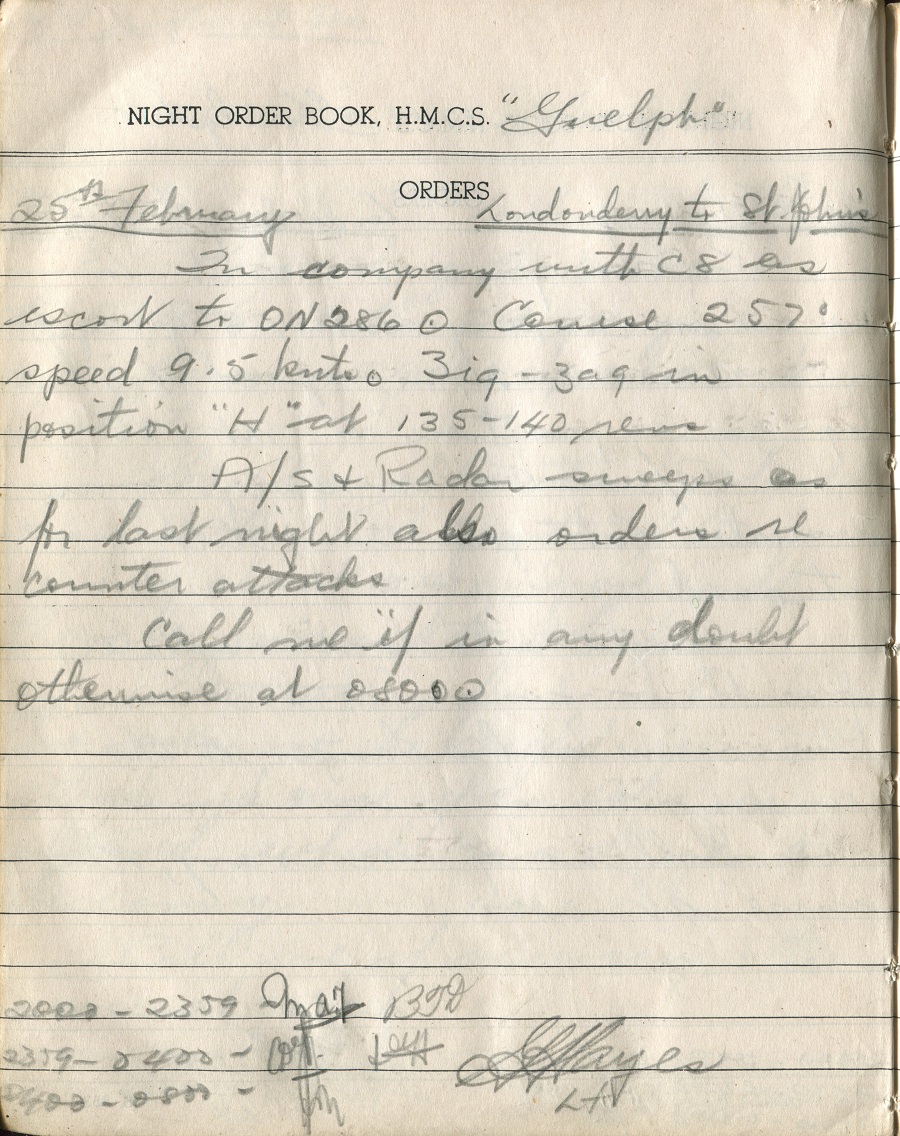 NIGHT ORDER BOOK, H.M.C.S. "Guelph"
ORDERS
25th February Londonderry to St. John's
In company with C8 as
escort to ON286. Course 257°
speed 9.5 knts. Zig-zag in
position "H" at 135-140 revs
A/S + Radar sweeps as
for last night also orders re
counter attacks
Call me if in any doubt
otherwise at 0800.
2000 - 2359
2359 - 0400 -
0400 - 0800 -
Hayes
Lt